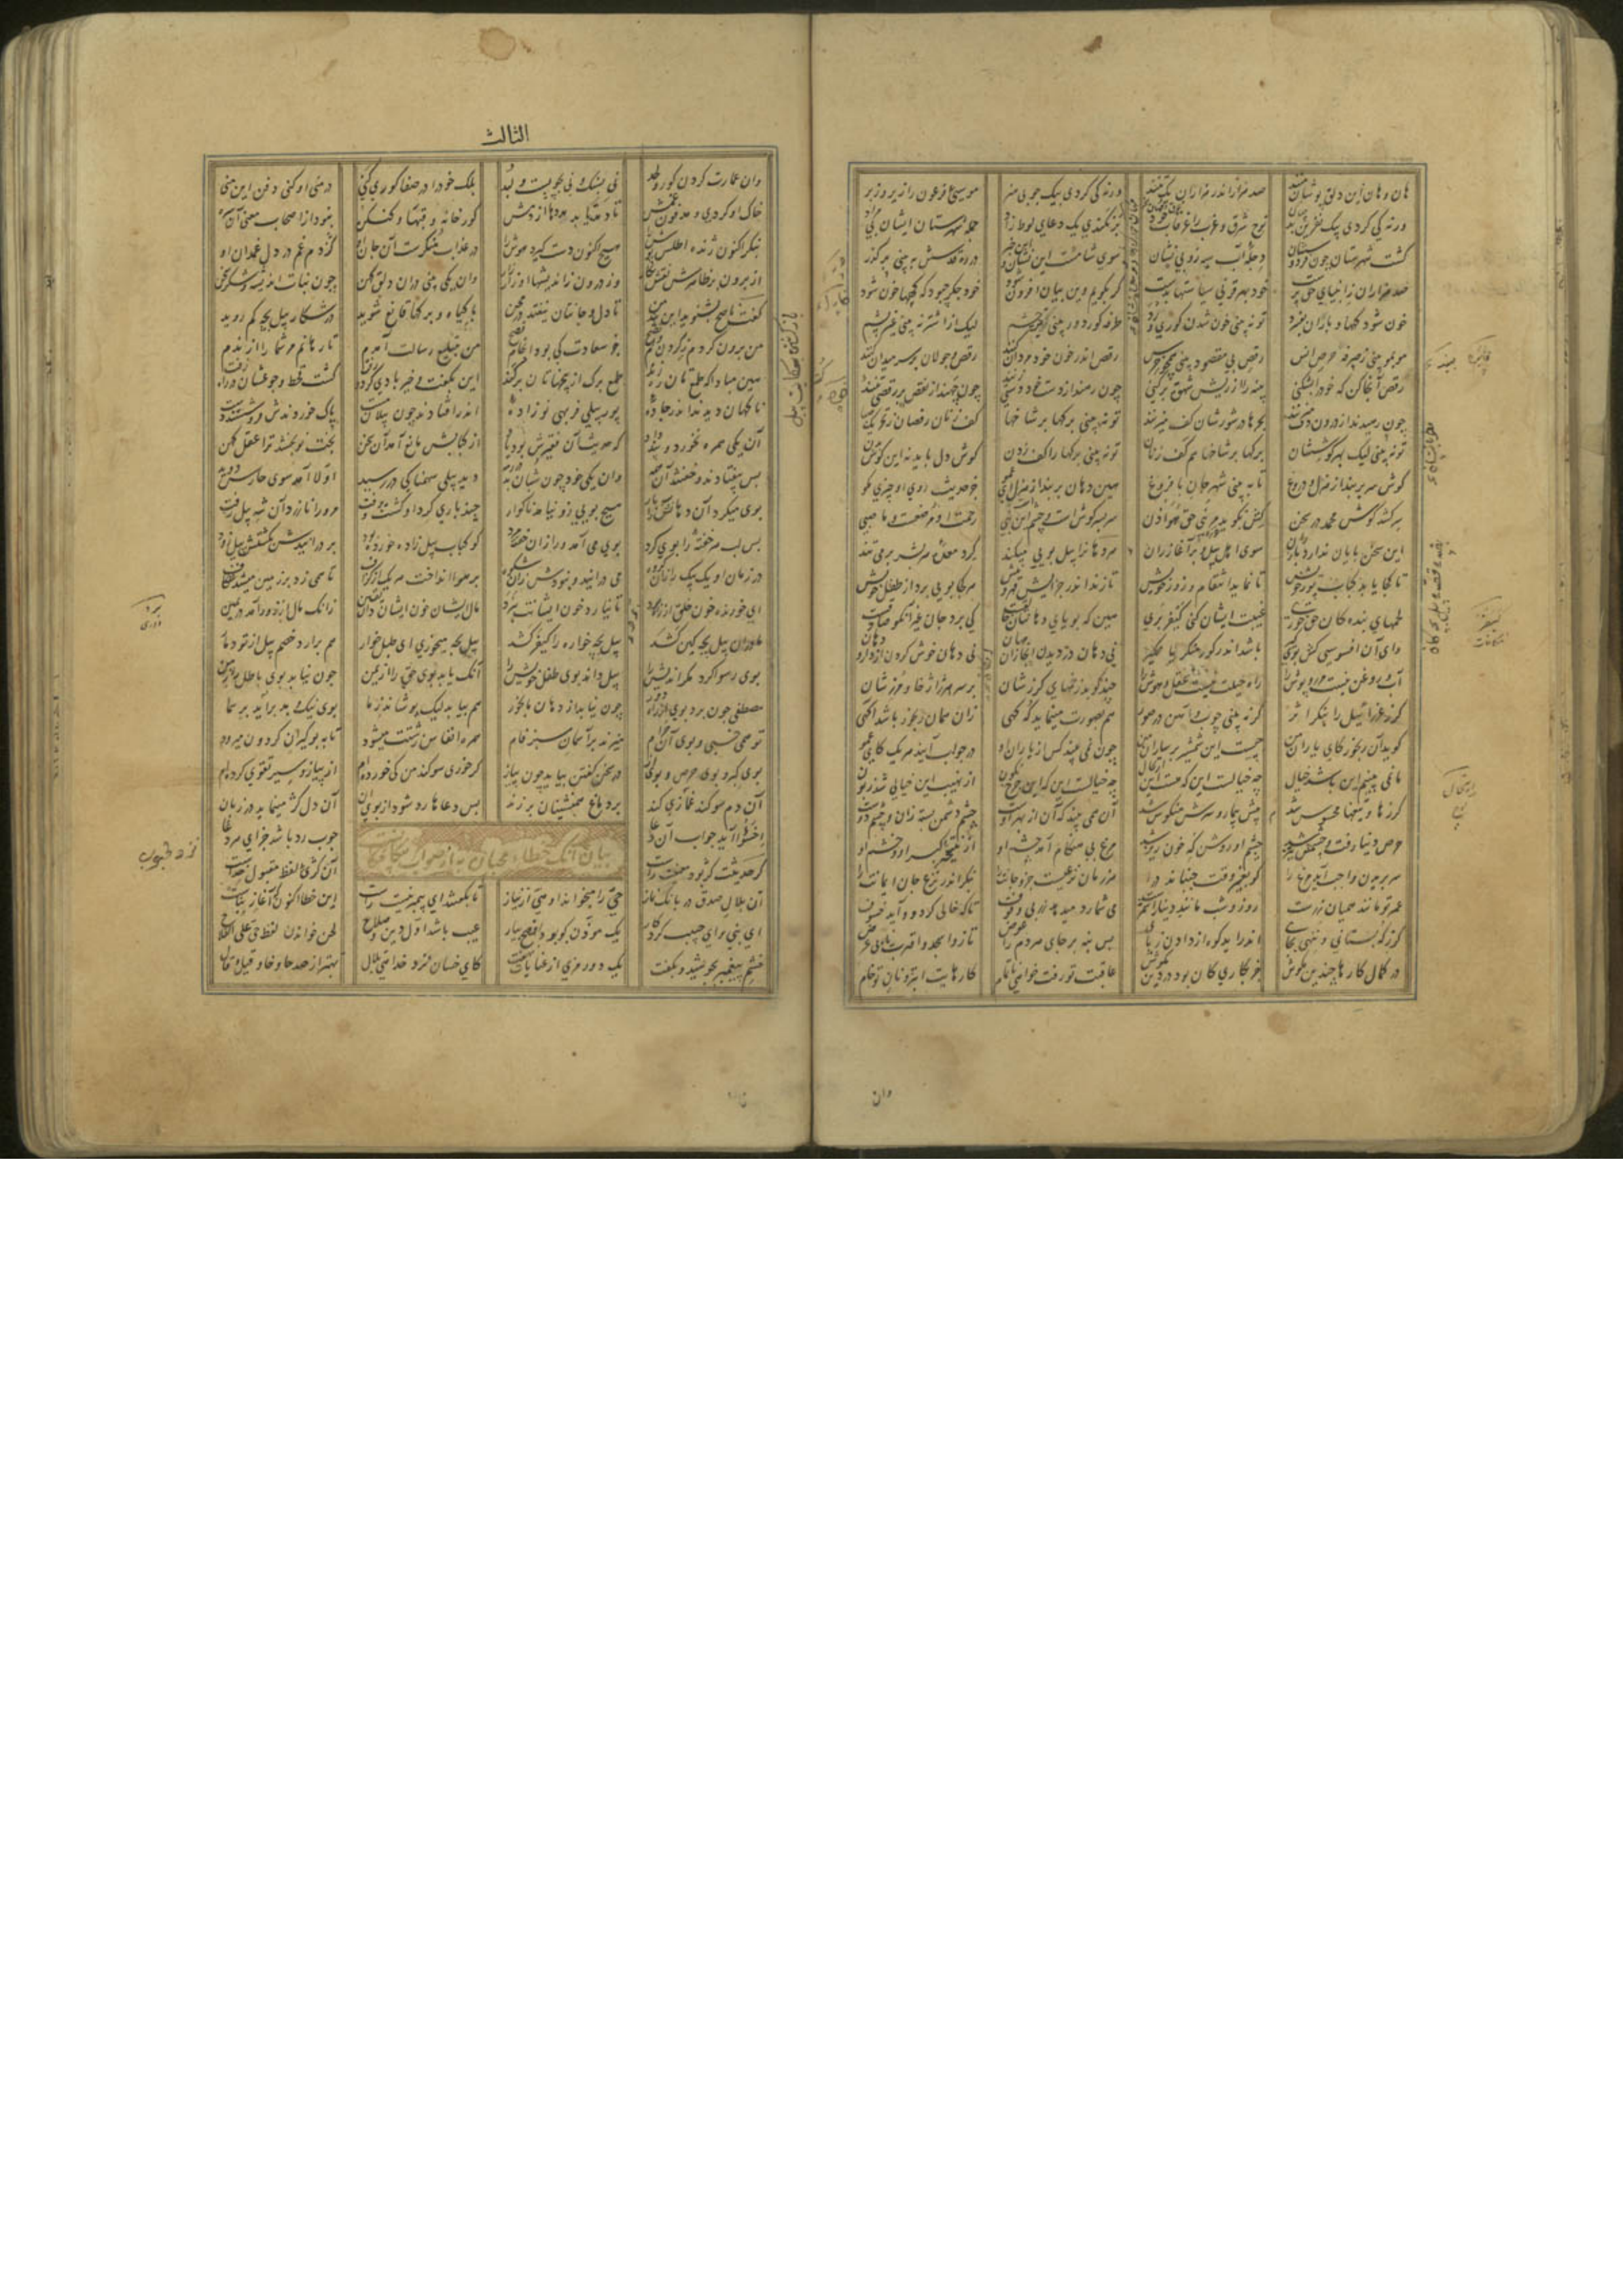 هان و هان این دلق پوشان منند صد هزار اندر هزاران یک تنند ورنه کی کردی بیک چوبی هنر موسیی فرعون را زیر و زبر
ورنه کی کردی بیک نفرین بد نوح شرق و غرب را غرقاب خود برنکندی یک دعای لوط راد جمله شهرستان ایشان بی
گشت شهرستان چون فردوسشان دجلهٔ آب سیه رو بین نشان سوی شامست این نشان و این خبر در ره قدسش به بینی بر گذر
صد هزاران زانبیای حق پرست خود بهر قرنی سیاستها بدست گر بگویم وین بیان افزون شود خود جگر چبود که کهها خون شود
خون شود کهها و باز آن بفسرد تو نه بینی خون شدن کوری و رد طرفه کوری دور بین تیز چشم لیک از اشتر نه بینی غیر پشم
موبمو بینی ز صرفه حرص انس رقص بی مقصود بینی همچو خرس رقص اندر خون خود مردان کنند رقص و جولان بر سر میدان کنند
رقص آنجا کن که خود را بشکنی پنبه را از ریش شهوت بر کنی چون رهند از دست خود دستی زنند چون جهند از نقص خود رقصی کنند
از درون دف میزنند بحرها در شورشان کف میزنند تو نه بینی برگها بر شاخها کف زنان رقصان ز تحریک
تو نه بینی لیک بهر گوششان برگها بر شاخها هم کف زنان تو نه بینی برگها را کف زدن گوش دل باید نه این گوش بدن
گوش سر بر بند از هزل و دروغ تا به بینی شهر جان با فروغ هین دهان بر بند از هزل ای جز حدیث روی او چیزی مگو
سر کشد گوش محمد در سخن کش بگوید در نبی حق هو اذن سر بسر گوش است و چشم این نبی رحمت او مرضعست و ما صبی
این سخن پایان ندارد باز ران سوی اهل پیل بر آغاز ران هر دهانرا پیل بویی میکند گرد معدهٔ هر بشر بر می تند
تا کجا یابد کباب پور خویش تا نماید انتقام و زور خویش تا زند اندر جزایش هر کجا بویی برد از طفل خویش
لحمهای بندگان حق خوری غیبت ایشان کنی کیفر بری هین که بویای دهانتان خالقست کی برد جان غیر آنکو صادقست
وای آن افسوسیی کش بوی گیر باشد اندر گور منکر یا نکیر نی دهان دزدیدن امکان زان مهان نی دهان خوش کردن از دارو دهان
آب و روغن نیست مر روپوش را راه حیلت نیست عقل و هوش را چند کوبد زخمهای گرزشان بر سر هر ژاژخا و مرزشان
گرز عزرائیل را بنگر اثر گر نه بینی چوب و آهن در صور هم بصورت مینماید گه گهی زان همان رنجور باشد آگهی
گوید آن رنجور کای یاران من چیست این شمشیر بر ساران من چون نمی بیند کس از یاران او در جواب آیند هر یک کای عمو
ما نمی بینیم این باشد خیال چه خیالست این که هست این ارتحال چه خیالست این که این چرخ نگون از نهیب این خیالی شد کنون
گرزها و تیغها محسوس شد پیش بیمار و سرش منکوس شد آن همی بیند که آن از بهر اوست چشم دشمن بسته زان و چشم دوست
حرص دنیا رفت و چشمش تیز شد چشم او روشن گه خون ریز شد مرغ بی هنگام آمد چشم او از نتیجه کبر او و خشم او
سر بریدن واجب آید مرغ را کو بغیر وقت جنباند درا هر زمان نزعیست جزو جانت را بنگر اندر نزع جان ایمانت را
عمر تو مانند همیان زرست روز و شب مانند دینار اشمرست می شمارد میدهد زر بی وقوف تا که خالی گردد و آید خسوف
گر ز که بستانی و ننهی بجای اندر آید کوه از دادن ز پای بس بنه بر جای هر دم را عوض تا ز واسجد و اقترب یابی غرض
در تمام کارها چندین مکوش جز بکاری کان بود در دین مکوش عاقبت تو رفت خواهی ناتمام کارهایت ابتر و نان تو خام
وان
الثالث
وان عمارت کردن گور و لحد نی بسنگ و نی بچوبست و لبد بلک خود را در صفا گوری کنی در منی او کنی دفن این منی
خاک او گردی و مدفون غمش تا دمت یابد مددها از دمش گور خانه و قبها و کنگره نبود از اصحاب معنی آن سره
بنگر اکنون زنده اطلس پوش را هیچ اکنون دست گیرد هوش را در عذاب منکرست آن جان او کژدم غم در دل غمدان او
از برون بر ظاهرش نقش و نگار وز درون ز اندیشها او زار زار وان یکی بینی دران دلق کهن چون نبات اندیشه و شکر سخن
گفت ناصح بشنوید این پند من تا دل و جانتان نگردد ممتحن با گیاه و برگها قانع شوید در شکار پیل بچه کم روید
من برون کردم ز گردن وام نصح جز سعادت کی بود انجام نصح من بتبلیغ رسالت آمدم تا رهانم مر شما را از ندم
هین مبادا که طمع تان ره زند طمع برگ از بیخهاتان بر کند این بگفت و خیر بادی کرد و رفت گشت قحط و جوعشان در راه زفت
ناگهان دیدند اندر جاده پور پیلی فربهی نو زاده اندر افتادند چون گرگان مست پاک خوردندش فرو شستند دست
آن یکی همره نخورد و پند داد که حدیث آن فقیرش بود یاد از کبابش مانع آمد آن سخن بخت نو بخشد ترا عقل کهن
بس بیفتادند و خفتند آن همه وان یکی خود چون شبان دید پیلی سهمناکی در رسید اولا آمد سوی حارس دوید
بوی میکرد آن دهانش را سه بار هیچ بویی زو نیامد ناگوار چند باری گرد او گشت و برفت مر ورا نازرد آن شه پیل زفت
بس لب هر خفته را بوی کرد بوی می آمد ورا زان خفته مرد کو کباب پیل زاده خورده بود بر درانید و بکشتش پیل زود
در زمان او یک بیک را زان گروه می درانید و نبودش زان شکوه بر هوا انداخت هر یک از گزاف تا همی زد بر زمین میشد شکاف
ای خورنده خون خلق از راه برد تا نیارد خون ایشانت نبرد مال ایشان خون ایشان دان یقین زانک مال از زور آمد در یمین
مادر آن پیل بچه کین کشد پیل بچه خواره را کیفر کشد پیل بچه میخوری ای طبل خوار هم برآرد خصم پیل از تو دمار
بوی رسوا کرد مکر اندیش را پیل داند بوی طفل خویش را آنک یابد بوی حق را از یمن چون نیابد بوی باطل را ز من
مصطفی چون برد بوی از راه دور چون نیابد از دهان ما بخور هم بیابد لیک پوشاند ز ما بوی نیک و بد برآید بر سما
تو همی خسپی و بوی آن حرام میزند بر آسمان سبز فام همره انفاس زشتت میشود تا به بو گیران گردون میرود
بوی کبر و بوی حرص و بوی آز در سخن گفتن بیاید چون پیاز گر خوری سوگند من کی خورده ام از پیاز و سیر تقوی کرده ام
آن دم سوگند غمازی کند بر دماغ همنشینان بر زند بس دعاها رد شود از بوی آن آن دل کژ مینماید در زبان
اخسؤا آید جواب آن دعا چوب رد باشد جزای هر دغا
بیان آنک خطاء محبان به از صواب بیگانگان
گر حدیثت کژ بود معنیت راست آن کژی لفظ مقبول خداست
آن بلال صدق در بانگ نماز حی را هی خواند از روی نیاز تا بگفتند ای پیمبر نیست راست این خطا اکنون که آغاز بناست
ای نبی و ای رسول کردگار یک مؤذن کو بود افصح بیار عیب باشد اول دین و صلاح لحن خواندن لفظ حی علی الفلاح
خشم پیغمبر بجوشید و بگفت یک دو رمزی از عنایات نهفت کای خسان نزد خدا هی بلال بهتر از صد حا و خا و قیل و قال
بازگشتن بحکایت پیل